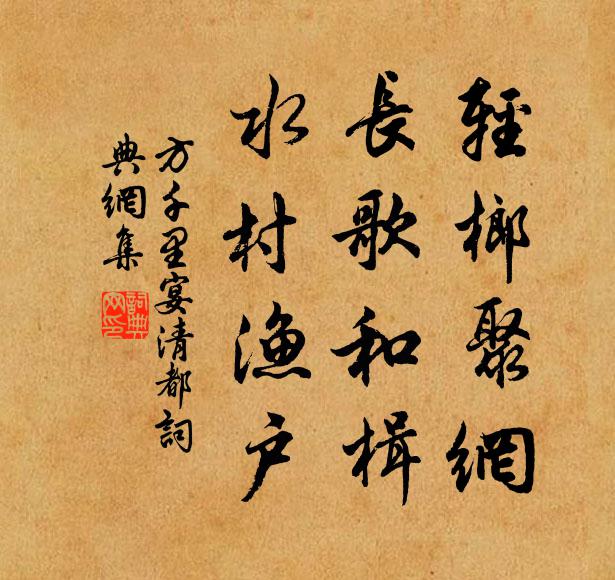 輕榔聚網
長歌和楫
水村漁戶
方千里宴清都詞
典網集
詞典網印